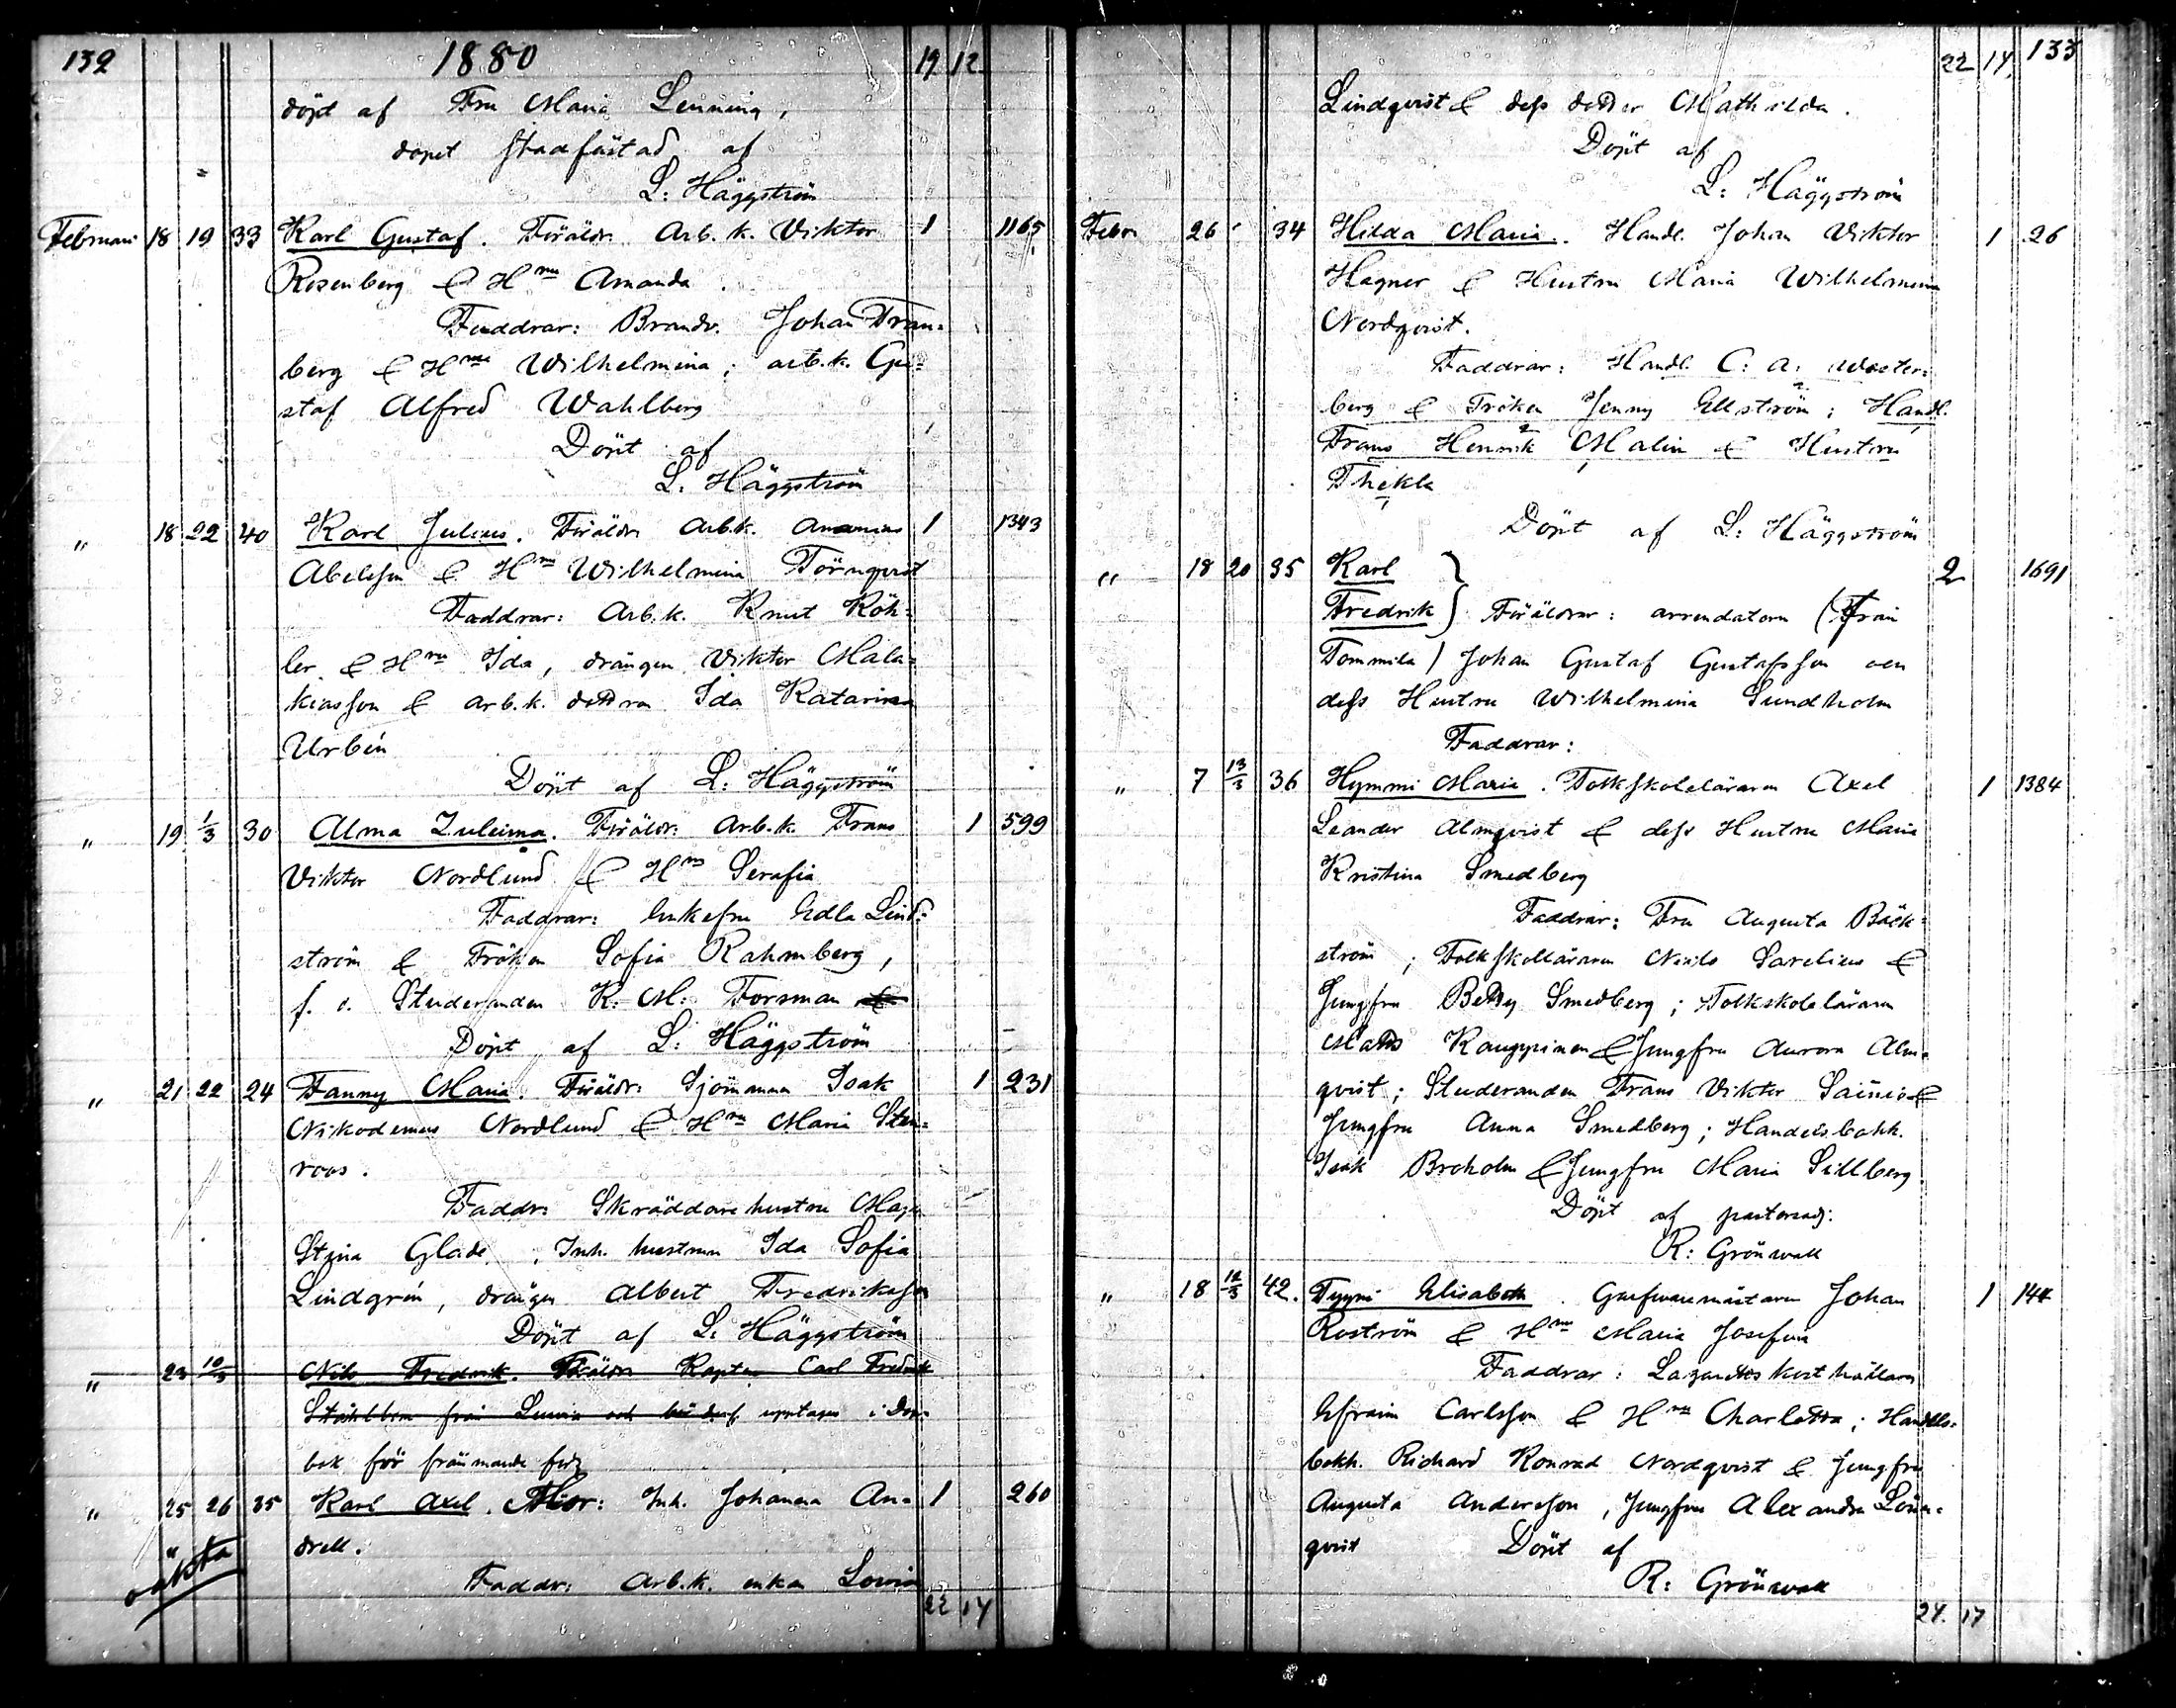 132 1880 19 12
döpt af Fru Maria Lenning,
dopet stadfästad af
L: Häggström
Februari 18 19 33 Karl Gustaf. Föräldr. Arb. k. Viktor 1 1165
Rosenberg & Hru Amanda.
Faddrar: Brandv. Johan Fran=
berg & Hru Wilhelmina; arb.k. Gu=
staf Alfred Wahlberg
Döpt af
L. Häggström
" 18 22 40 Karl Julius. Föräldr. Arb.k. Ananias 1 1343
Abelsson & Hru Wilhelmina Törnqvist
Faddrar: Arb.k. Knut Köh=
ler & Hru Ida, drängen Viktor Mala=
kiasson & arb.k. dottren Ida Katarina
Urbén
Döpt af L: Häggström
" 19 1/3 30 Alma Zuleima. Föräldr: Arb.k. Frans 1 599
Viktor Nordlund & Hru Serafia
Faddrar: Enkefru Edla Lind=
ström & Fröken Sofia Rahmberg,
f. d. Studeranden K. M. Forsman &
Döpt af L: Häggström
" 21 22 24 Fanny Maria. Föräldr: Sjömannen Isak 1 231
Nikodemus Nordlund & Hru Maria Sten=
roos.
Faddr: Skräddare hustru Maja
Stina Glade, Inh. hustrun Ida Sofia
Lindgrén, drängen Albert Fredriksson
Döpt af L: Häggström
" 23 10/3 Nils Fredrik. Föräldr. Kapten Carl Fredrik
från Luvia och upptages i Dop=
bok för främmande förs.
" 25 26 35 Karl Axel. Mor: Inh. Johanna An= 1 260
oäkta drell.
Faddr: Arb.k. enkan Lovisa
22 14
22 14, 133
Lindqvist & dess dotter Mathilda.
Döpt af
L: Häggström
Febr 26 34 Hilda Maria. Handl. Johan Viktor 1 26
Hagner & Hustru Maria Wilhelmina
Nordqvist.
Faddrar: Handl. C: A: Wester=
berg & Fröken Jenny Ekström; Handl.
Frans Henrik Malin & Hustru
Thekla
Döpt af L: Häggström
" 18 20 35 Karl 2 1691
Fredrik } Föräldrar: arrendatorn (från
Tommila) Johan Gustaf Gustafsson och
dess Hustru Wilhelmina Sundholm
Faddrar:
" 7 13/3 36 Hymmi Maria. Folkskoleläraren Axel 1 1384
Leander Almqvist & dess Hustru Maria
Kristina Smedberg
Faddrar: Fru Augusta Bäck=
ström; Folkskolläraren Sarelius &
Jungfru Betty Smedberg; Folkskoleläraren
Matts Kauppinen & Jungfru Aurora Alm=
qvist; Studeranden Frans Viktor Sainio &
Jungfru Anna Smedberg; Handelsbokh.
Isak Broholm & Jungfru Maria Sillberg
Döpt af pastorsadj:
R: Grönvall
" 18 12/3 42. Tyyni Elisabeth. Garfvaremästaren Johan 1 144
Roström & Hru Maria Josefina
Faddrar: Lazaretts kosthållaren
Efraim Carlsson & Hru Charlotta; Handels=
bokh. Richard Konrad Nordqvist & Jungfru
Augusta Andersson, Jungfru Alexandra Lönn=
qvist Döpt af
R: Grönvall
24. 17